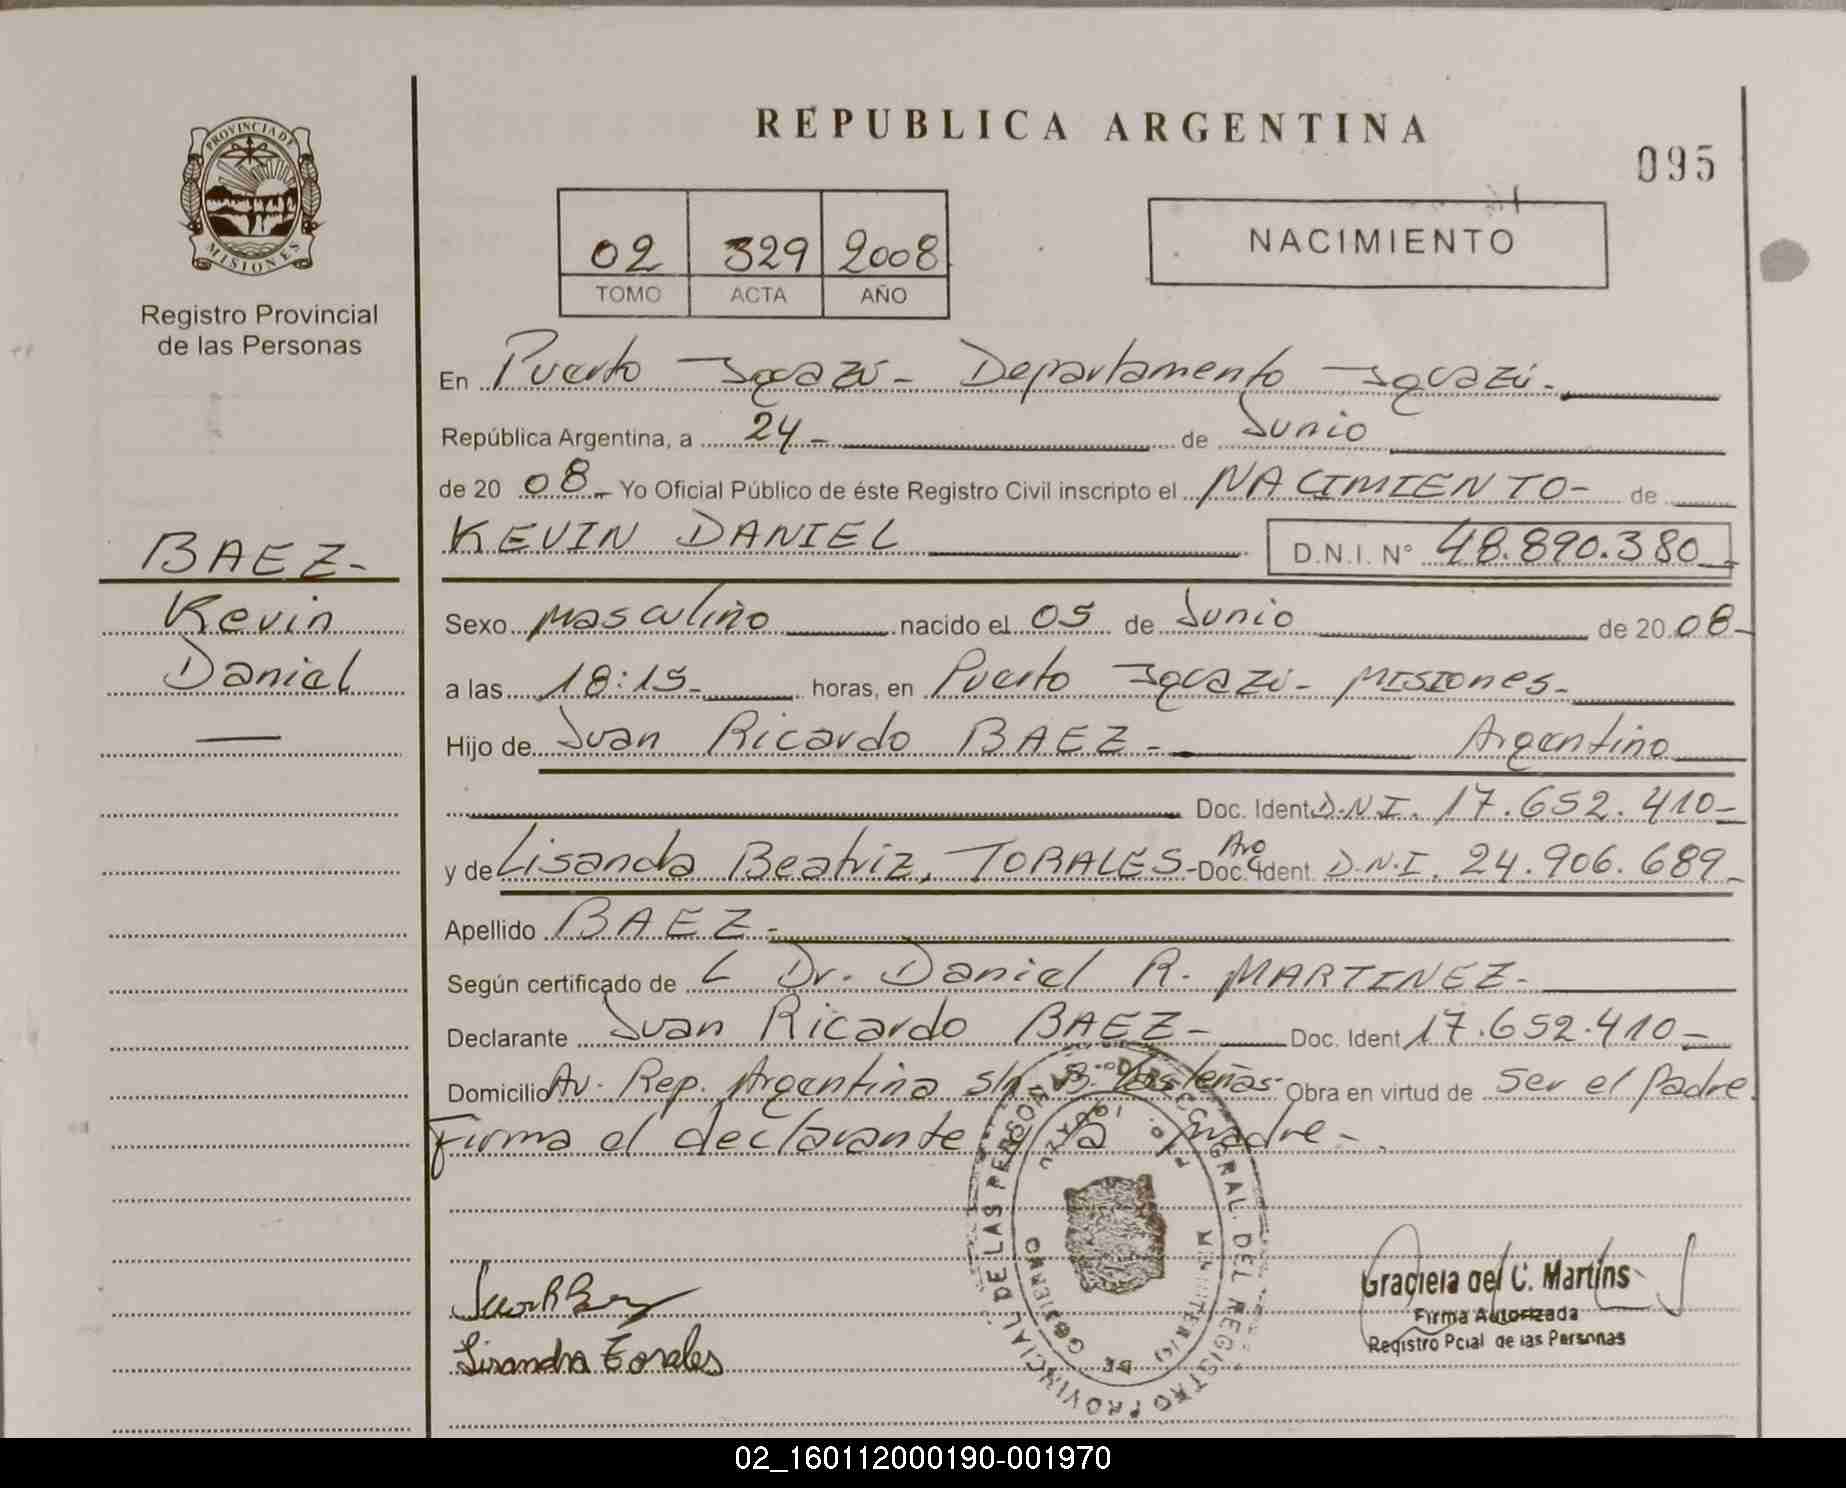 REPUBLICA ARGENTINA
095
PROVINCIA DE
MISIONES
Registro Provincial
de las Personas
02 329 2008
TOMO ACTA AÑO
NACIMIENTO
En Puerto Iguazú- Departamento Iguazú-
República Argentina, a 24- de Junio
de 20 08- Yo Oficial Público de éste Registro Civil inscripto el NACIMIENTO- de
KEVIN DANIEL D.N.I. N° 48.890.380
BAEZ-
Kevin
Daniel
Sexo masculino nacido el 05 de Junio de 20 08-
a las 18:15- horas, en Puerto Iguazú- MISIONES-
Hijo de Juan Ricardo BAEZ- Argentino
Doc. Ident D.N.I. 17.652.410-
y de Lisanda Beatriz, TORALES- Doc. Ident. D.N.I. 24.906.689-
Apellido BAEZ-
Según certificado de L Dr. Daniel R. MARTINEZ-
Declarante Juan Ricardo BAEZ- Doc. Ident 17.652.410-
Domicilio Av. Rep. Argentina s/n Obra en virtud de ser el Padre.
Firma el declarante y la madre-
DIRECC. GRAL. DEL REGISTRO PROVINCIAL DE LAS PERSONAS
MINISTERIO DE GOBIERNO
IGUAZU
Lisandra Torales
Graciela del C. Martins
Firma Autorizada
Registro Pcial de las Personas
02_160112000190-001970